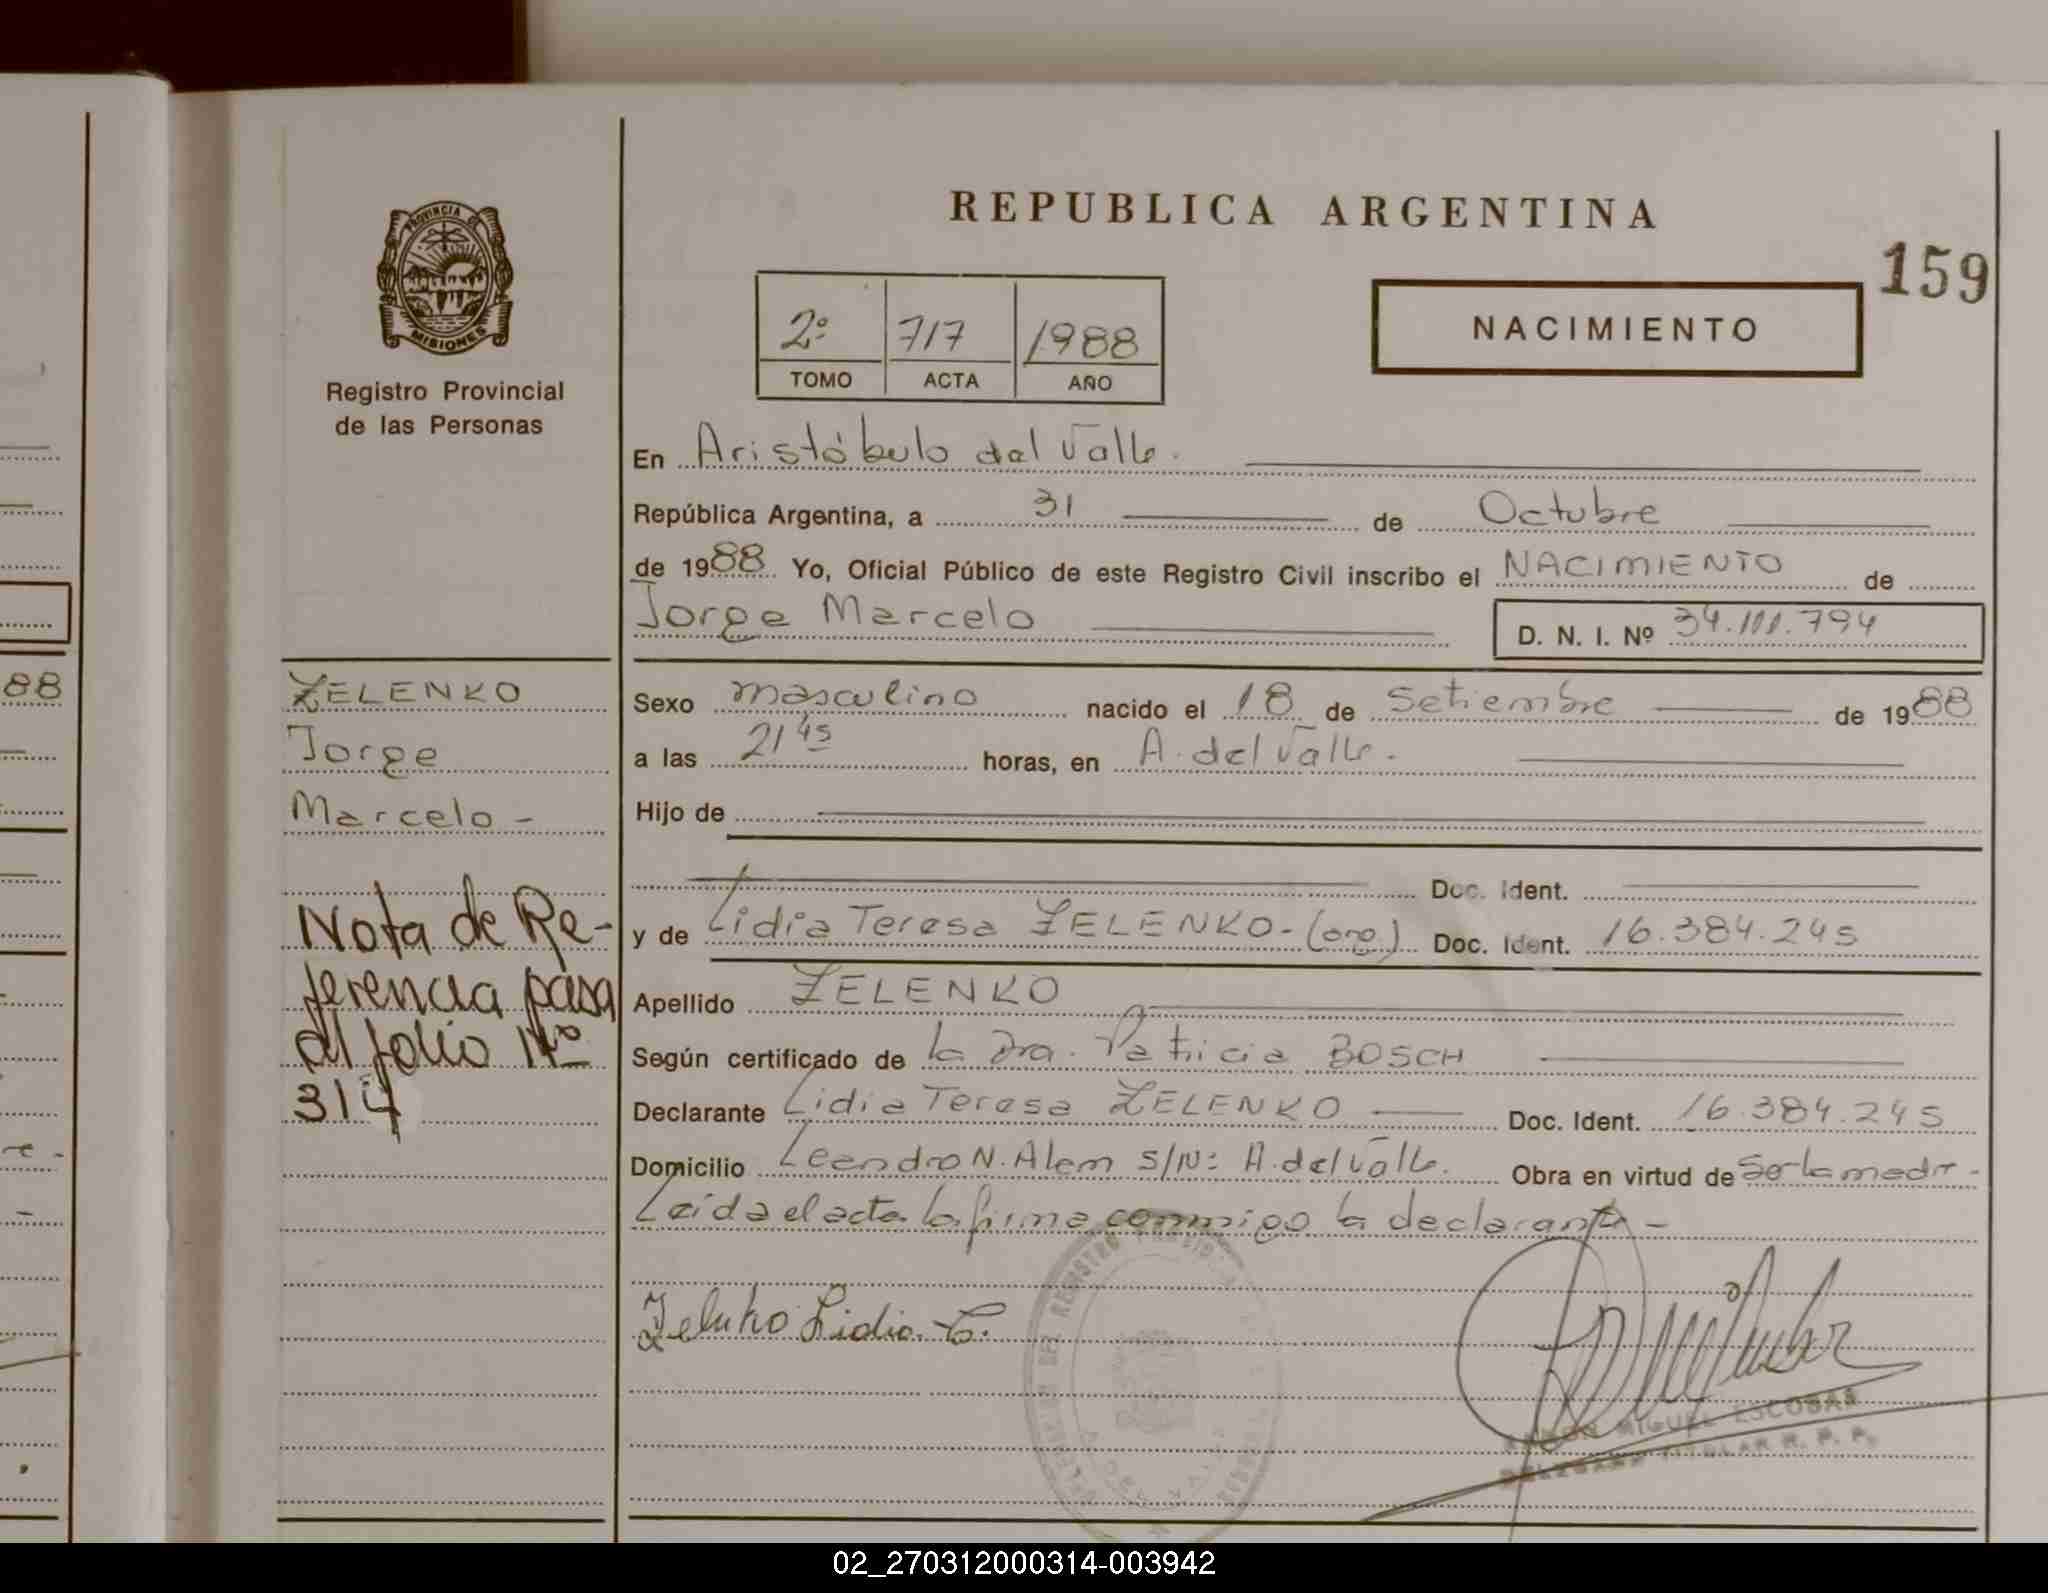 REPUBLICA ARGENTINA
159
PROVINCIA DE
MISIONES
Registro Provincial
de las Personas
2º 717 1988
TOMO ACTA AÑO
NACIMIENTO
En Aristóbulo del Valle.
República Argentina, a 31 de Octubre
de 1988 Yo, Oficial Público de este Registro Civil inscribo el NACIMIENTO de
Jorge Marcelo D. N. I. Nº 34.111.794
Sexo masculino nacido el 18 de Setiembre de 1988
a las 21 45 horas, en A. del Valle.
Hijo de
Doc. Ident.
y de Lidia Teresa ZELENKO - (arg.) Doc. Ident. 16.384.245
Apellido ZELENKO
Según certificado de la Dra. Patricia BOSCH
Declarante Lidia Teresa ZELENKO Doc. Ident. 16.384.245
Domicilio Leandro N. Alem S/Nº A. del Valle. Obra en virtud de Ser la madre -
Leída el acta la firma conmigo la declarante -
Zelenko Lidia. T.
RAMON MIGUEL ESCOBAR
DELEGADO TITULAR R. P. P.
ZELENKO
Jorge
Marcelo -
Nota de Re-
ferencia pasa
al folio Nº
314
88
02_270312000314-003942